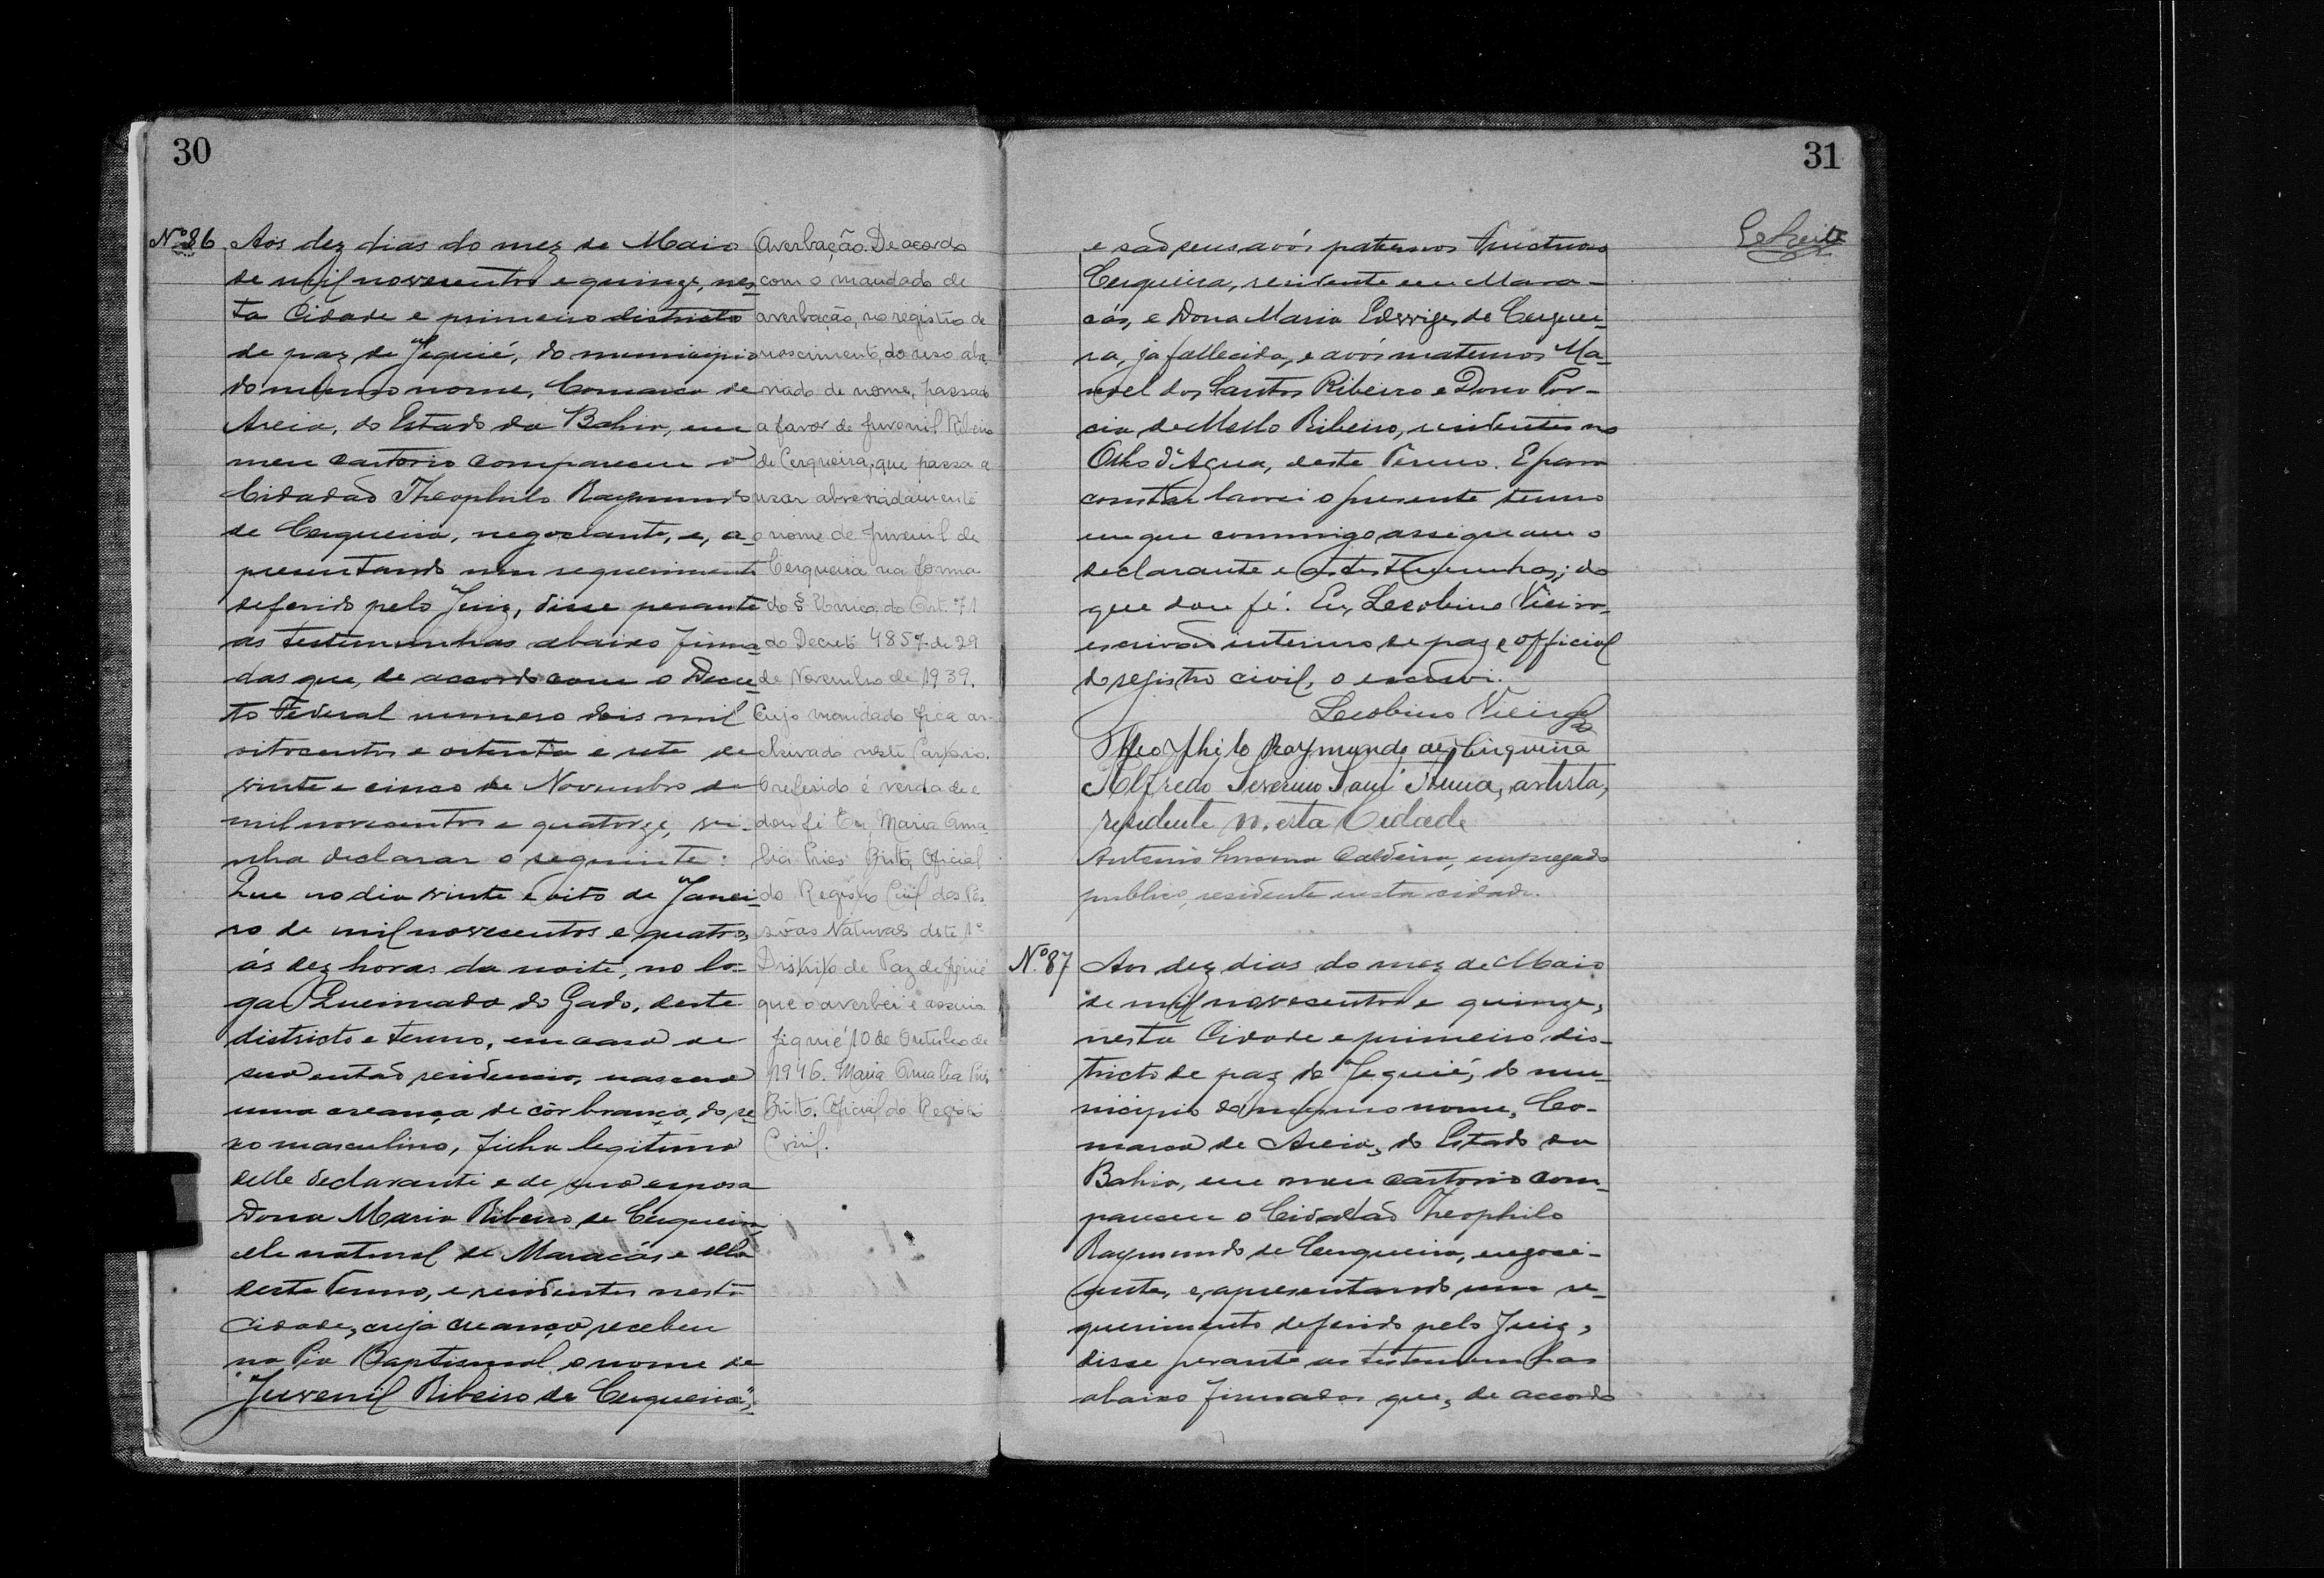 30
Nº 86
Aos dez dias do mez de Maio
de mil novecentos e quinze, nes-
ta Cidade e primeiro districto
de paz de Jequié, do municipio
do mesmo nome, Comarca de
Areia, do Estado da Bahia, em
meu cartorio compareceu o
Cidadão Theophilo Raymundo
de Cerqueira, negociante, e, a-
presentando um requerimento
deferido pelo Juiz, disse perante
as testemunhas abaixo firma-
das que, de accordo com o Decre-
to Federal numero dois mil
oitocentos e oitenta e sete de
vinte e cinco de Novembro de
mil novecentos e quatorze, vi-
nha declarar o seguinte:
Que no dia vinte e oito de Janei-
ro de mil novecentos e quatro,
ás dez horas da noite, no lo-
gar Queimada do Gado, deste
districto e termo, em casa de
sua então residencia, nasceu
uma creança de côr branca, do se-
xo masculino, filha legitima
delle declarante e de sua esposa
Dona Maria Ribeiro de Cerqueira,
elle natural de Maracás e ella
deste Termo, e residentes nesta
Cidade, cuja creança recebeu
na Pia Baptismal o nome de
"Juvenil Ribeiro de Cerqueira",
Averbação. De acordo
com o mandado de
averbação, no registro de
nascimento, do uso abre-
viado de nome, passado
a favor de Juvenil Ribeiro
de Cerqueira, que passa a
usar abreviadamente
o nome de Juvenil de
Cerqueira na forma
do § Unico, do Art. 71
do Decreto 4857 de 29
de Novembro de 1939.
Cujo mandado fica ar-
chivado neste Cartorio.
O referido é verdade e
dou fé Eu, Maria Ama-
lia Pires Britto, Oficial
do Registro Civil das Pes-
sôas Naturais deste 1º
Distrito de Paz de Jequié
que o averbei e assino
Jequié 10 de Outubro de
1946. Maria Amalia Pires
Britto. Oficial do Registro
Civil.
31
e são seus avós paternos Fructuoso
Cerqueira, residente em Mara-
cás, e Dona Maria Edwiges de Cerquei-
ra, já fallecida, e avós maternos Ma-
noel dos Santos Ribeiro e Dona Por-
cia de Mello Ribeiro, residentes no
Olho d'Agua, deste Termo. E para
constar lavrei o presente termo
em que commigo assignam o
declarante e as testemunhas; do
que dou fé. Eu, Leobino Vieira,
escrivão interino de paz e official
do registro civil, o escrevi.
Leobino Vieira
Theophilo Raymundo de Cerqueira
Alfredo Severino artista,
residente n'esta Cidade
Antonio Caldeira, empregado
publico, residente nesta cidade.
Nº 87
Aos dez dias do mez de Maio
de mil novecentos e quinze,
nesta Cidade e primeiro dis-
tricto de paz de Jequié, do mu-
nicipio do mesmo nome, Co-
marca de Areia, do Estado da
Bahia, em meu cartorio com-
pareceu o Cidadão Theophilo
Raymundo de Cerqueira, negoci-
ante, e, apresentando um re-
querimento deferido pelo Juiz,
disse perante as testemunhas
abaixo firmadas que, de accordo